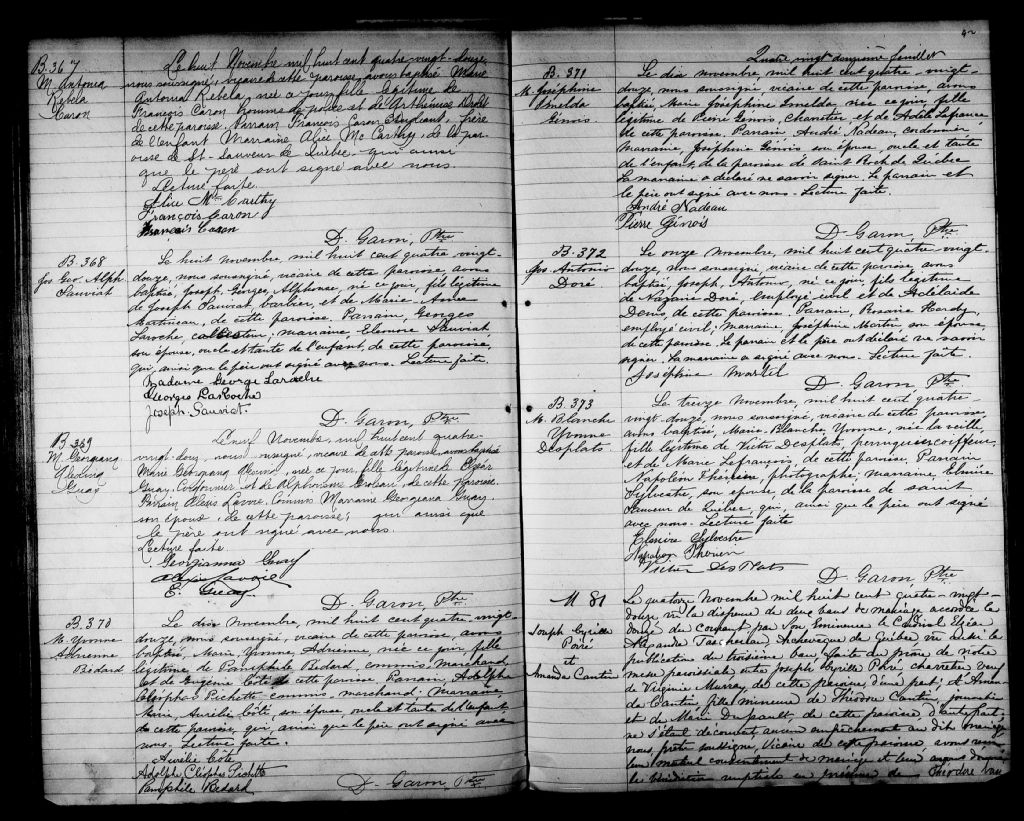 B. 367
M. Antonia
Rebela
Caron
Le huit Novembre mil huit cent quatre-vingt-douze,
nous soussigné, vicaire de cette paroisse, avons baptisé Marie
Antonia Rebela, née ce jour, fille légitime de
François Caron homme de police et de
de cette paroisse. Parrain François Caron Etudiant, frère
de l'enfant Marraine Alice Mc Carthy, de la pa-
roisse de St-Sauveur de Québec qui ainsi
que le père ont signé avec nous
Lecture faite.
Alice Mc Carthy
François Caron
François Caron
D. Garon, Ptre
B. 368
Jos. Geo. Alph.
Sauviat
Le huit Novembre, mil huit cent quatre vingt-
douze, nous soussigné, vicaire de cette paroisse, avons
baptisé, Joseph, Georges, Alphonse, né ce jour, fils légitime
de Joseph Sauviat barbier, et de Marie-Anne
Martineau, de cette paroisse. Parrain, Georges
Laroche collecteur; marraine Eleonore Sauviat
son épouse, oncle et tante de l'enfant, de cette paroisse,
qui, ainsi que le père ont signé avec nous. Lecture faite.
Madame George Laroche
Georges LaRoche
Joseph Sauviat.
D. Garon, Ptre
B. 369
M. Georgang
Guay
Le neuf Novembre, mil huit cent quatre-
vingt-douze, nous soussigné, vicaire de cette paroisse, avons baptisé
Marie Georgang née ce jour, fille légitime de Elzéar
Guay, Cordonnier et de Alphonsine de cette paroisse.
Parrain Alexis Lavoie, Commis Marraine Georgiana Guay,
son épouse, de cette paroisse; qui ainsi que
le père ont signé avec nous.
Lecture faite.
Georgianna Guay
Alexis Lavoie
E. Guay
D. Garon, Ptre
B. 370
M. Yvonne
Adrienne
Bédard
Le dix Novembre, mil huit cent quatre-vingt
douze, nous soussigné, vicaire de cette paroisse, avons
baptisé, Marie Yvonne, Adrienne, née ce jour, fille
légitime de Pamphile Bédard commis marchand
et de Eugénie Côté de cette paroisse, Parrain, Adolphe
Cléophas Pichette commis, marchand; Marraine,
Aurélie Côté, son épouse, oncle et tante de l'enfant
de cette paroisse, qui, ainsi que le père ont signé avec
nous. Lecture faite.
Aurélie Côté
Adolphe Cléophas Pichette
Pamphile Bédard
D. Garon, Ptre
Quatre vingt douzième feuillet
B. 371
M. Joséphine
Imelda
Génois
Le dix novembre, mil huit cent quatre-vingt-
douze, nous soussigné vicaire de cette paroisse, avons
baptisé, Marie Joséphine Imelda, née ce jour fille
légitime de Pierre Génois, Charretier, et de Adèle Lafrance
de cette paroisse. Parrain André Nadeau, cordonnier,
marraine, Joséphine Génois son épouse, oncle et tante
de l'enfant, de la paroisse de Saint Roch de Québec
La marraine a déclaré ne savoir signer. Le parrain et
le père ont signé avec nous. Lecture faite.
André Nadeau
Pierre Génois
D. Garon, Ptre
B. 372
Jos. Antonio
Doré.
Le onze Novembre, mil huit cent quatre vingt
douze, nous soussigné, vicaire de cette paroisse, avons
baptisé, Joseph, Antonio, né ce jour fils légitime
de Nazaire Doré, employé civil et de Adélaide
Denis, de cette paroisse. Parrain, Rosaire Hardy,
employé civil; Marraine, Joséphine Martin son épouse,
de cette paroisse. Le parrain et le père ont déclaré ne savoir
signer. La marraine a signé avec nous. Lecture faite.
Joséphine Martel
D. Garon, Ptre
B. 373
M. Blanche
Yvonne
Desplats.
Le treize Novembre, mil huit cent quatre
vingt-douze, nous soussigné, vicaire de cette paroisse,
avons baptisé, Marie-Blanche, Yvonne, née la veille,
fille légitime de Victor Desplats, perruquier coiffeur,
et de Marie Lefrançois, de cette paroisse, Parrain
Napoléon photographe; marraine, Elmire
Sylvestre, son épouse, de la paroisse de Saint
Sauveur de Québec, qui, ainsi que le père ont signé
avec nous. Lecture faite
Elmire Sylvestre
Napoléon
Victor Des Plats
D. Garon, Ptre
M 81
Joseph Cyrille
Porré
et
Amanda Cantin
Le quatorze Novembre mil huit cent quatre-vingt-
douze vu la dispense de deux bans de mariage accordée le
douze du courant par Son Eminence le Cardinal Elzéar
Alexandre Taschereau Archevêque de Québec vu aussi la
publication du troisième ban faite au prône de notre
messe paroissiale entre Joseph Cyrille Porré charretier veuf
de Virginie Murray, de cette paroisse, d'une part; et Aman-
da Cantin, fille mineure de Théodore Cantin, journalier
et de Marie Dupault, de cette paroisse, d'autre part;
ne s'étant découvert aucun empêchement au dit mariage
nous, prêtre soussigné, vicaire de cette paroisse, avons reçu
leur mutuel consentement de mariage et leur avons donné
la bénédiction nuptiale en présence de Théodore